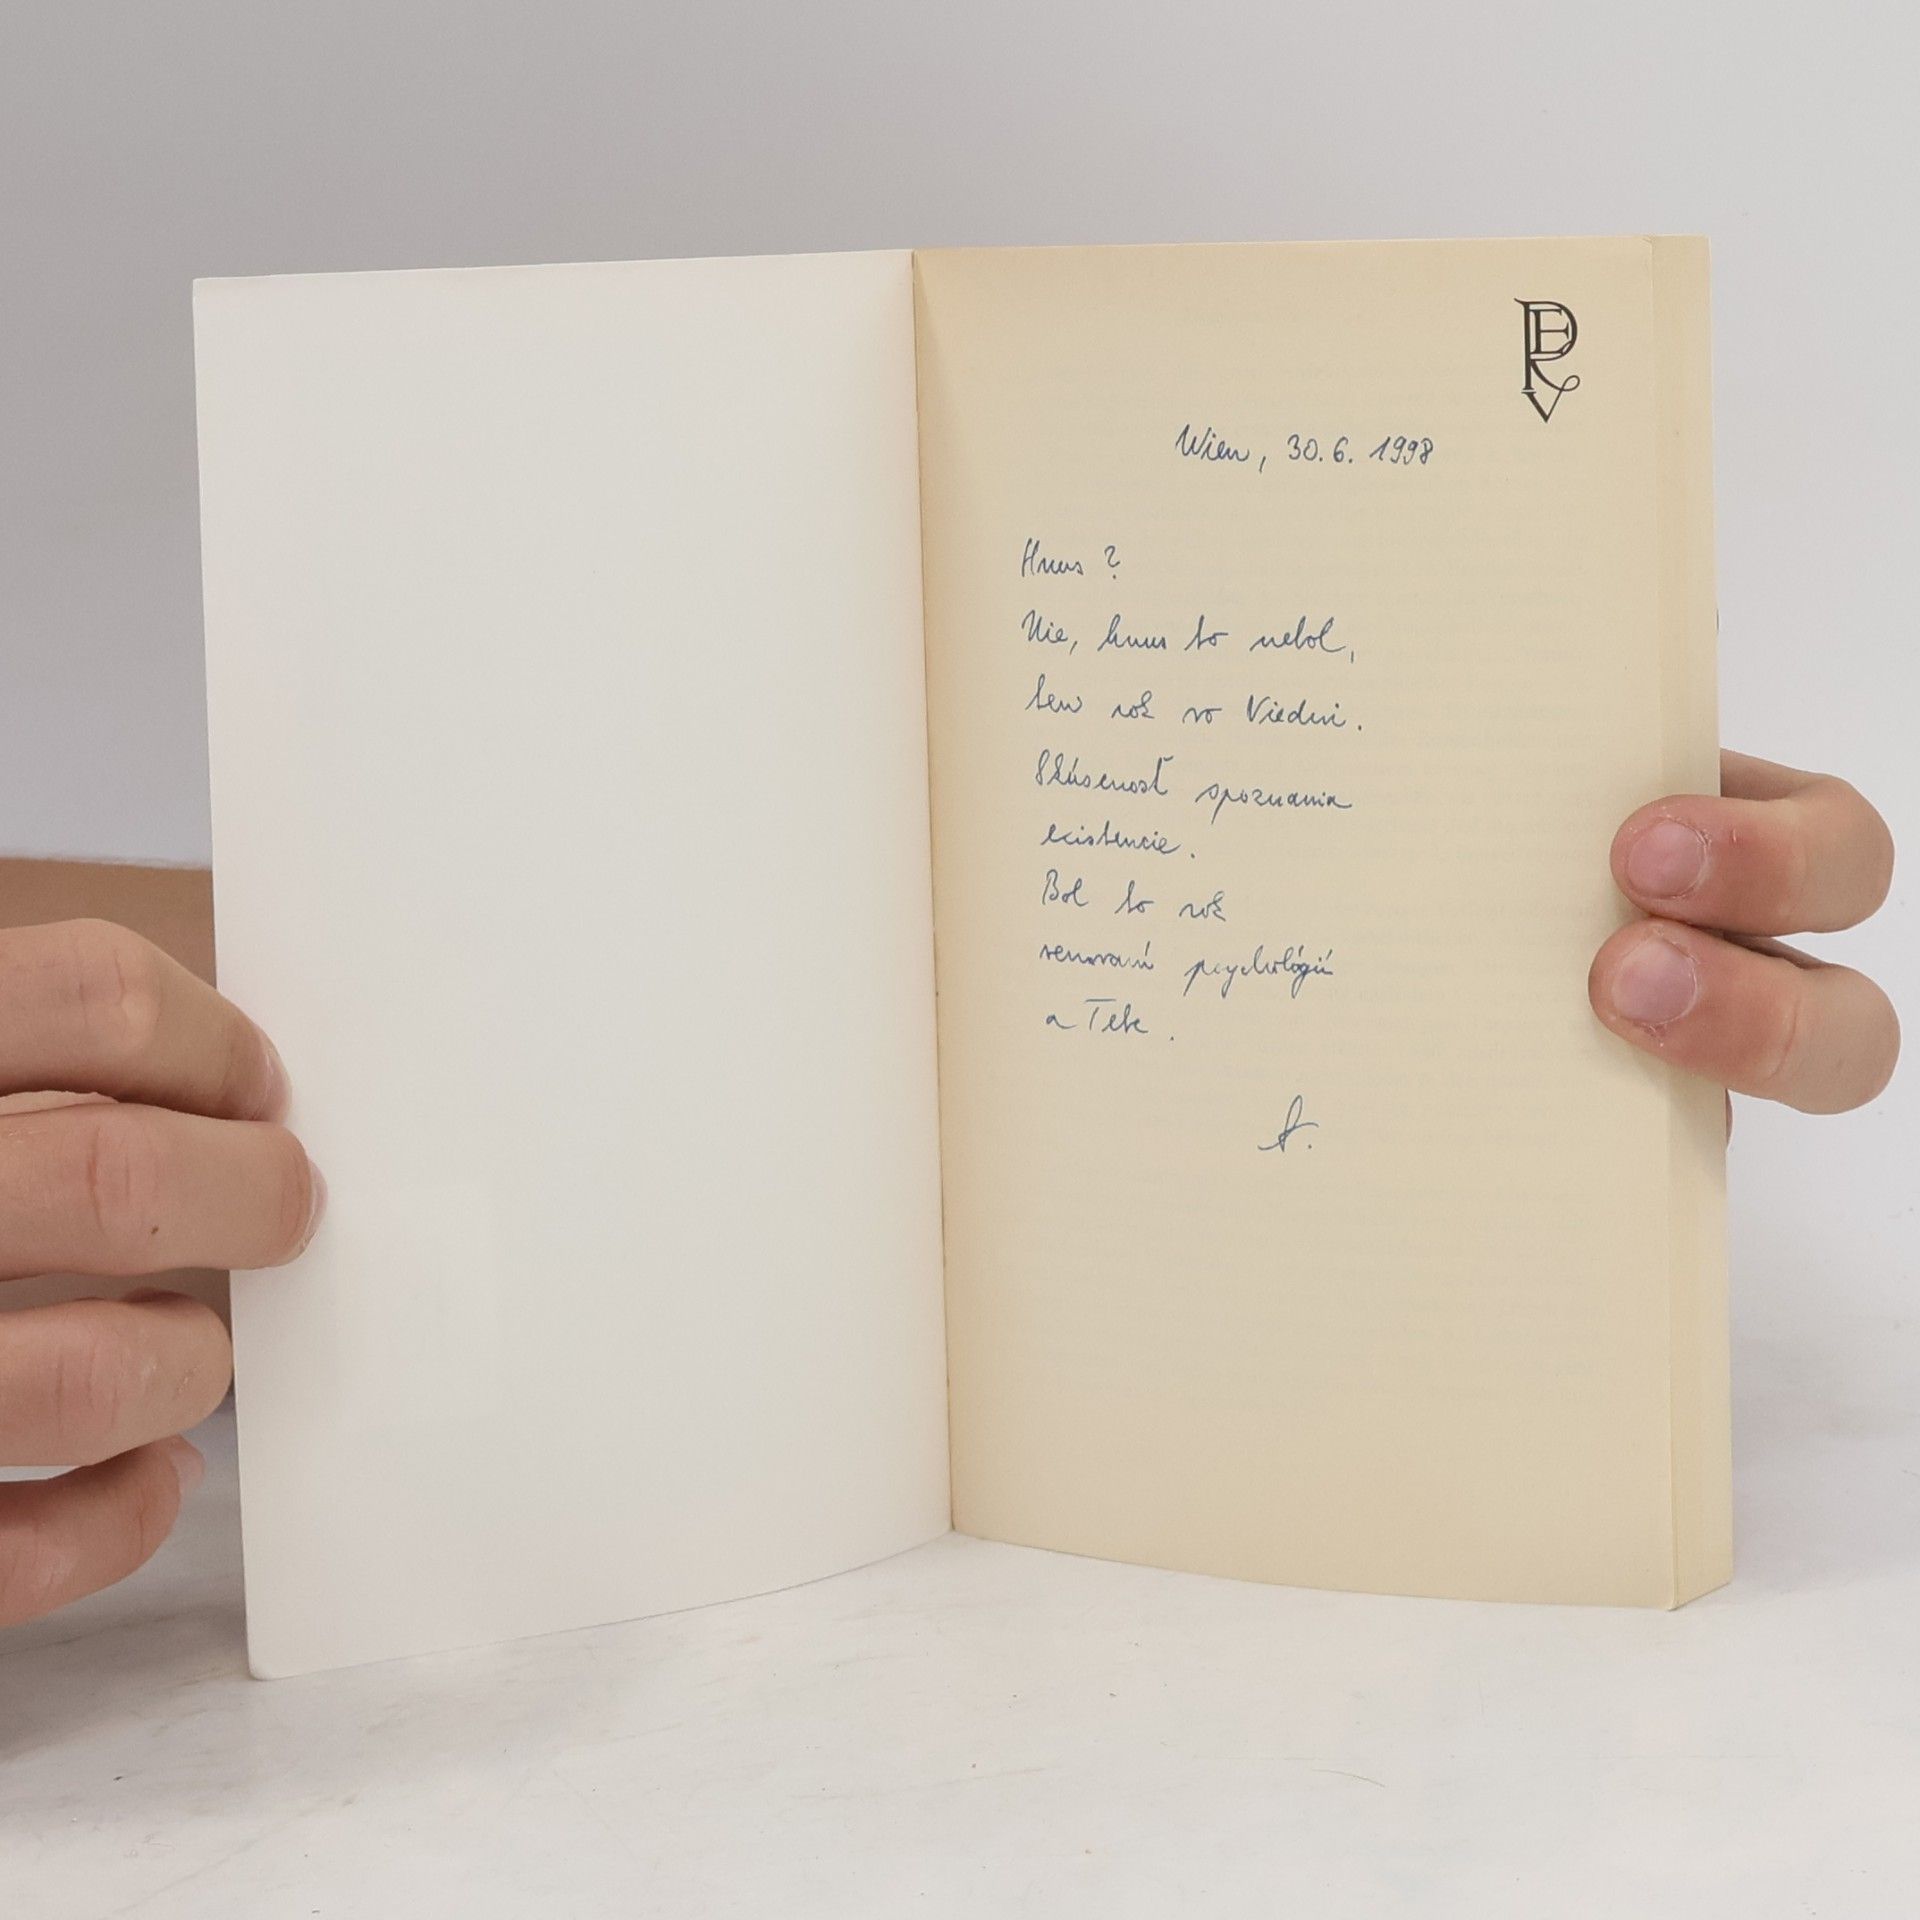 Wien, 30. 6. 1998
Hnus ?
Nie, hnus to nebol,
ten rok vo Viedni.
Skúsenosť spoznania
existencie.
Bol to rok
venovaný psychológii
a Tebe.